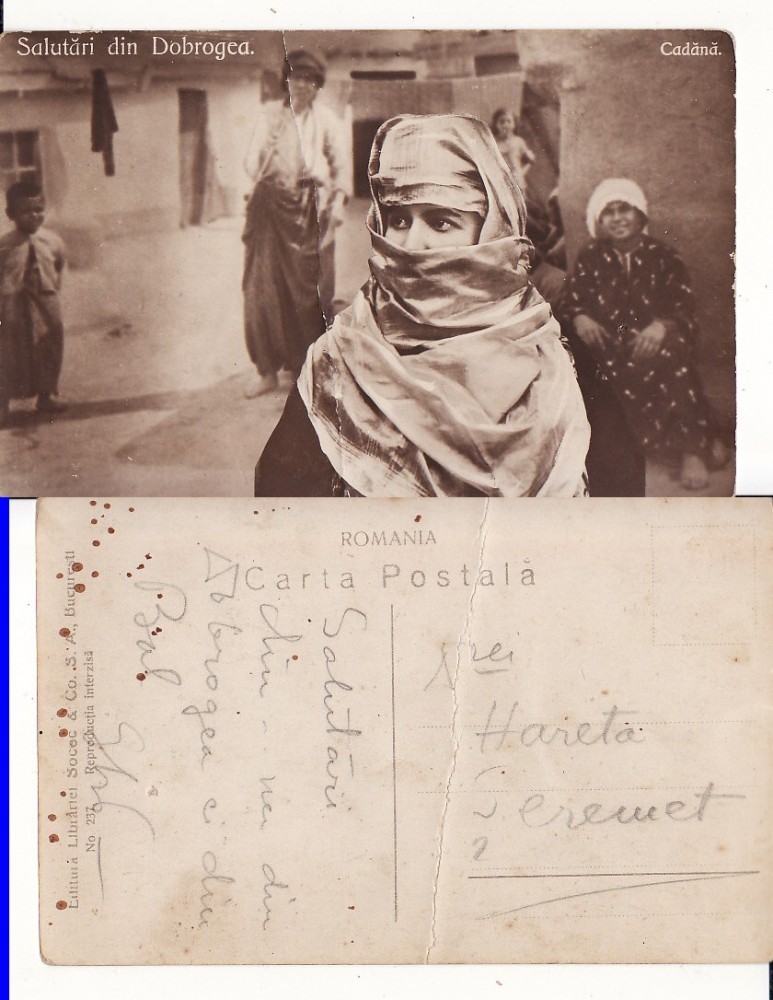 Salutări din Dobrogea.
Cadănă.
ROMANIA
Carta Postală
Editura Librăriei Socec & Co. S. A., București
No 237 Reproducția interzisă
Salutări
din - nu din
Dobrogea ci din
Bal
Hareta
Seremet